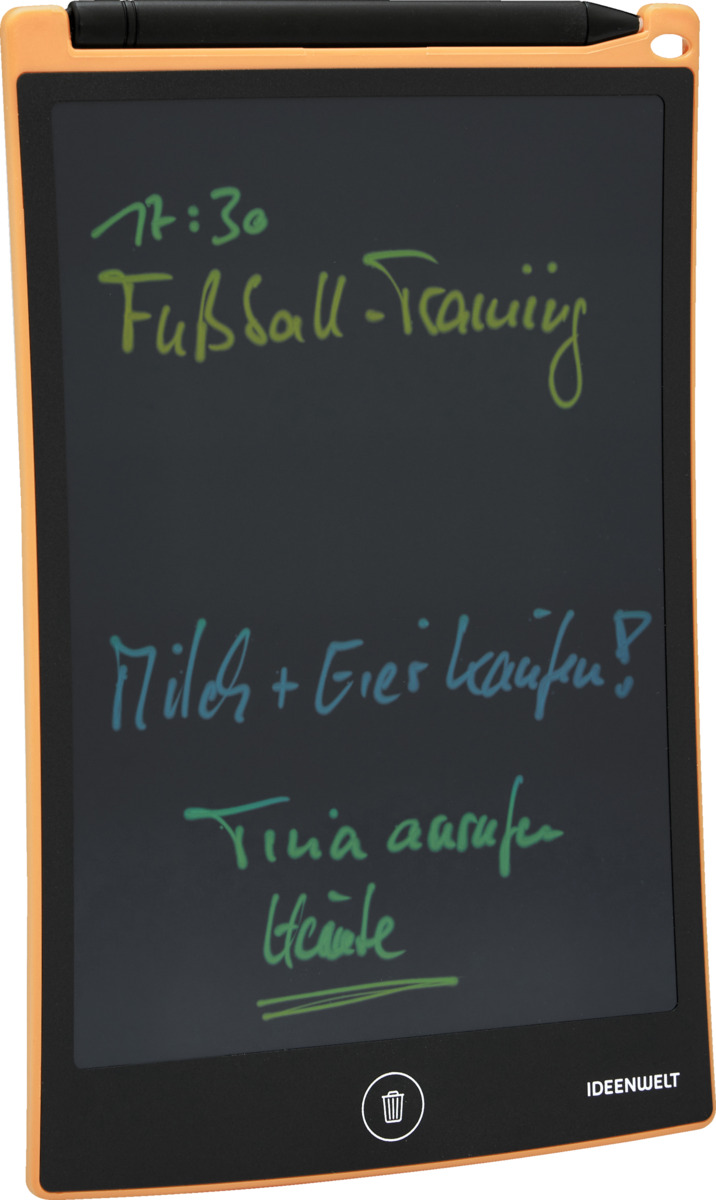 17:30
Fußball-Training
Milch + Eier kaufen!
Tina anrufen
Heute
IDEENWELT